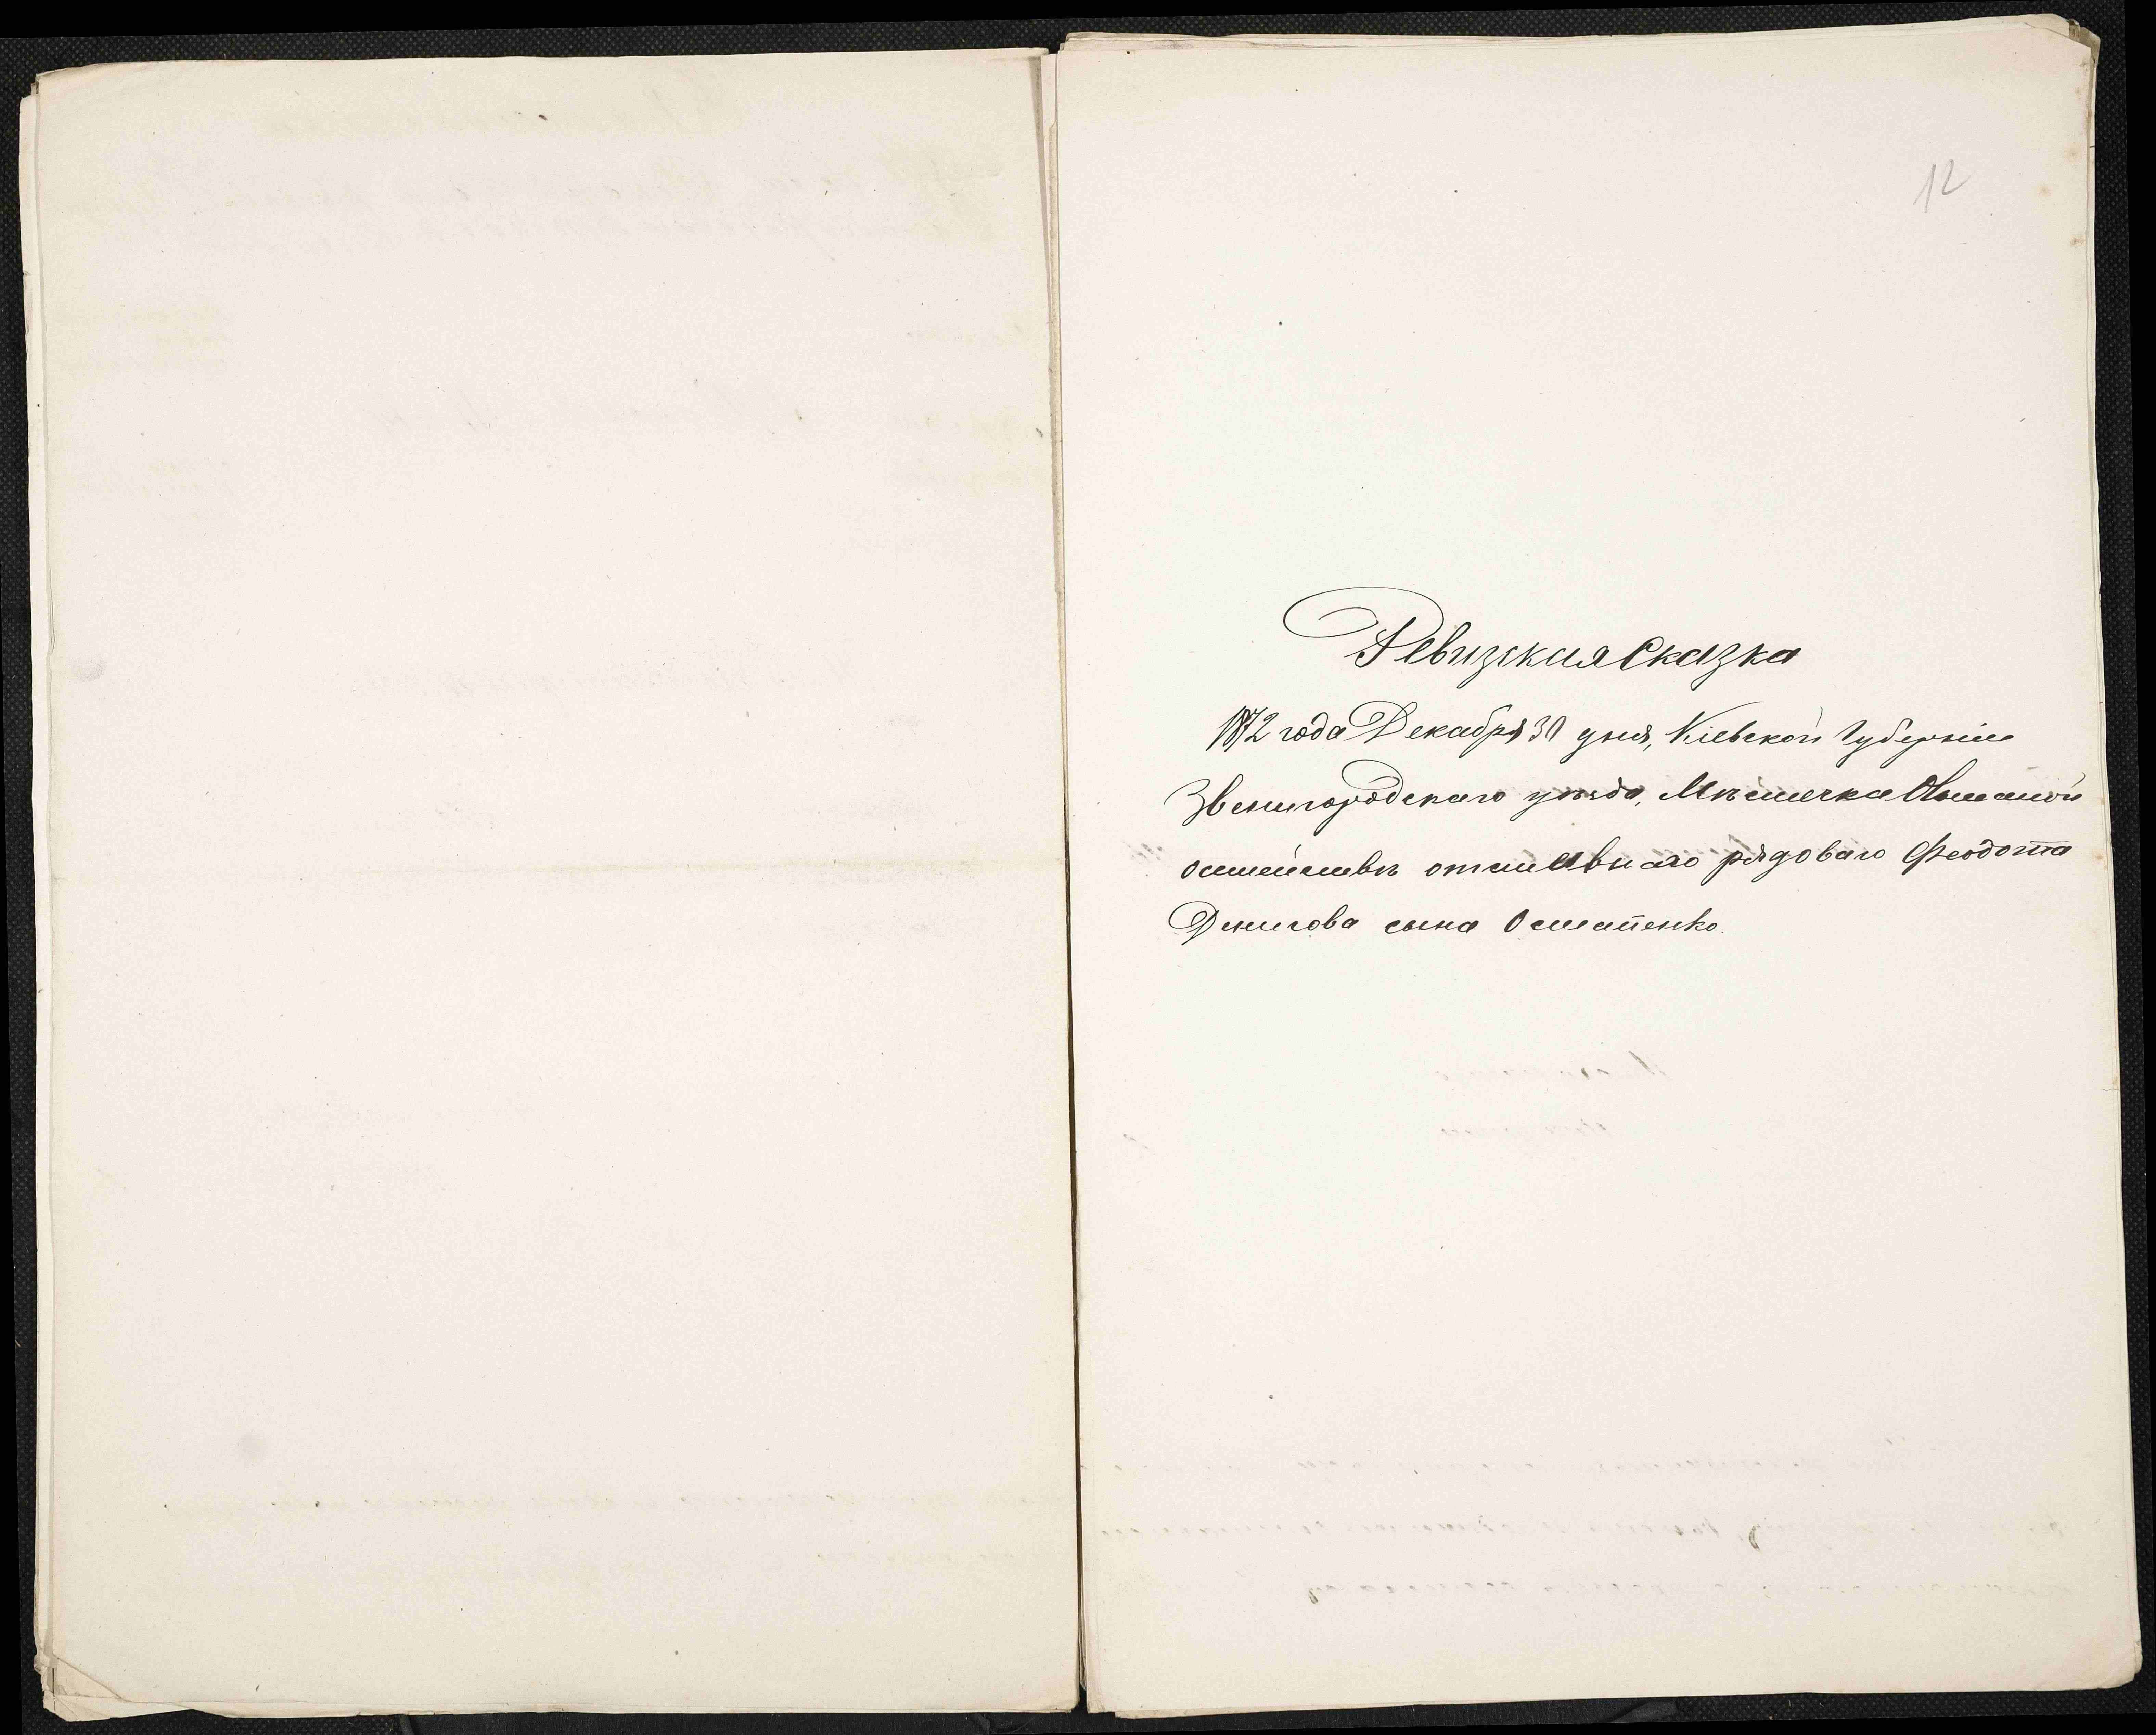 12
Ревизская Сказка
1872 года Декабря 30 дня, Кіевской Губерніи
Звенигородскаго уѣзда, Мѣстечка Ольшаной
о семействѣ отставнаго рядоваго Феодота
сына Остапенко.